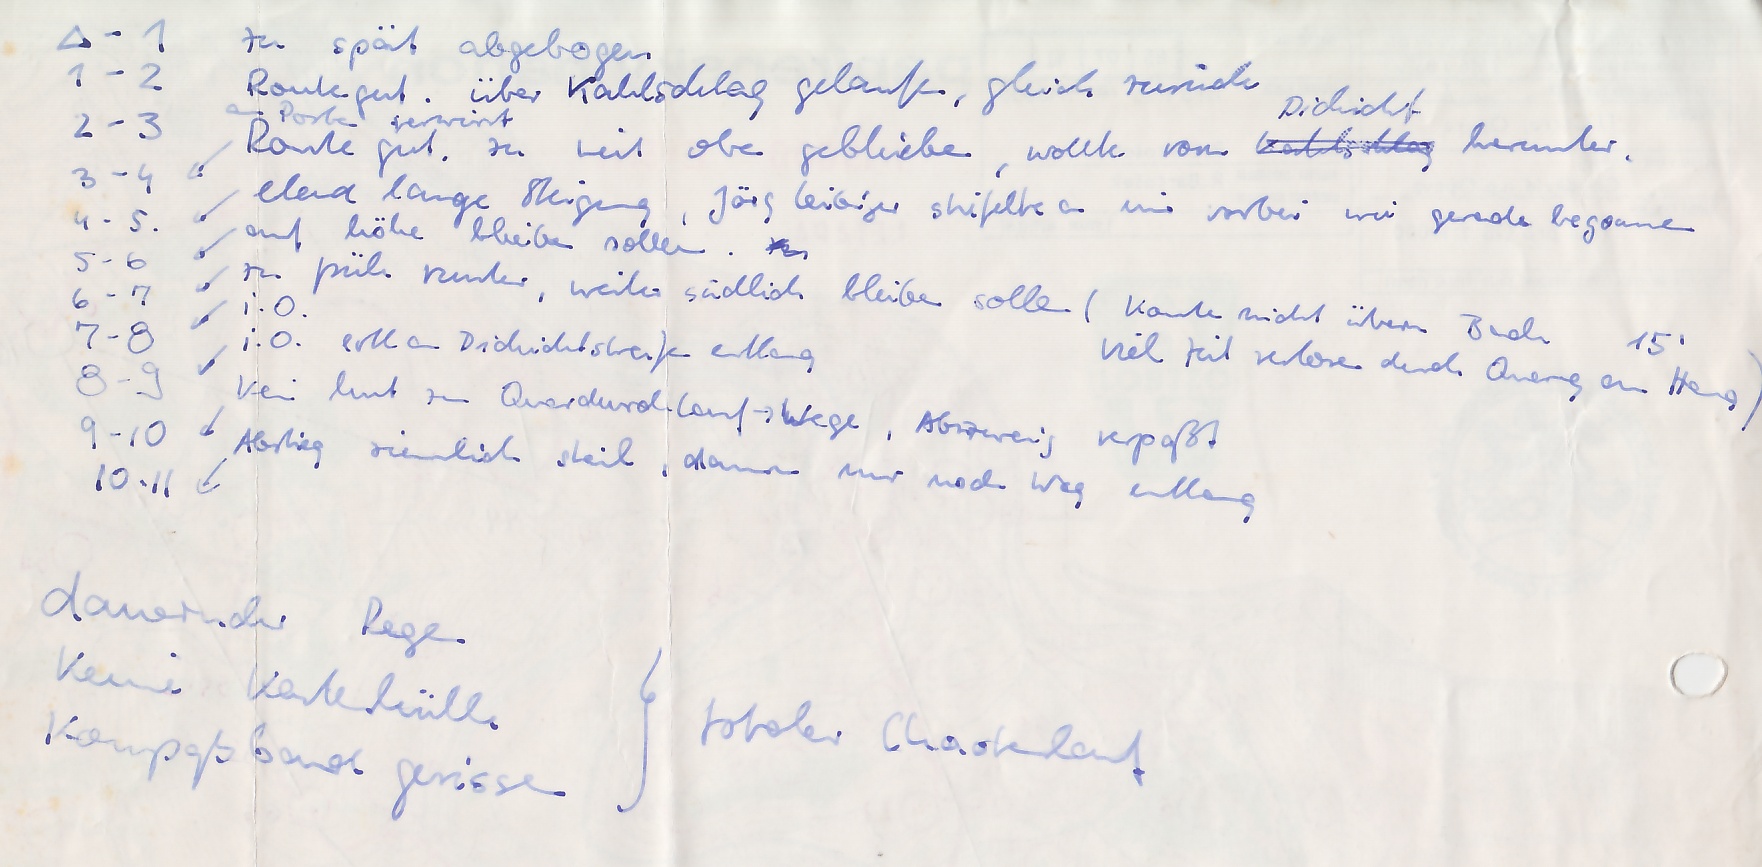 △ - 1 zu spät abgebogen
1 - 2 Route gut. über Kahlschlag gelaufen, gleich zurück
am Posten verwirrt Dickicht
2 - 3 Route gut. zu weit oben geblieben, wollte vom Kahlschlag herunter.
3 - 4 elend lange Steigung, Jörg stiefelte an mir vorbei wie gerade begonnen
4 - 5. auf höhe bleiben sollen.
5 - 6 zu früh runter, weiter südlich bleiben sollen (Konnte nicht übern Bach 15'
6 - 7 i.O. viel Zeit verloren durch Querung am Hang)
7 - 8 i.O. entlang
8 - 9 Kein lust zu Querdurchlauf → Wege, Abzweig verpaßt
9 - 10 Abstieg ziemlich steil, dann nur noch Weg entlang
10 - 11
dauernder Regen
Keine Kartenhülle
totaler Chaotenlauf
Kompaßband gerissen